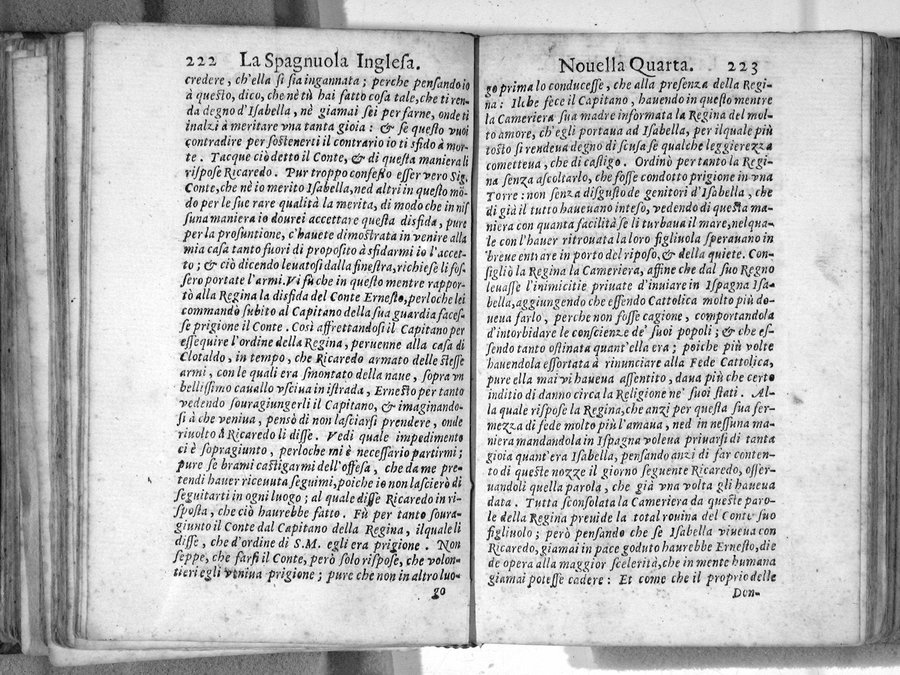 222 La Spagnuola Ingleſa.
credere, ch'ella ſi ſia ingannata; perche penſando io
à queſto, dico, che nè tù hai fatto coſa tale, che ti ren-
da degno d'Iſabella, nè giamai ſei per farne, onde ti
inalzi à meritare vna tanta gioia: & ſe queſto vuoi
contradire per ſoſtenerti il contrario io ti sfido à mor-
te. Tacque ciò detto il Conte, & di queſta maniera li
riſpoſe Ricaredo. Pur troppo confeſſo eſſer vero Sig.
Conte, che nè io merito Iſabella, ned altri in queſto mō-
do per le ſue rare qualità la merita, di modo che in niſ
ſuna maniera io dourei accettare queſta disfida, pure
per la proſuntione, c'hauete dimoſtrata in venire alla
mia caſa tanto fuori di propoſito à sfidarmi io l'accet-
to; & ciò dicendo leuatoſi dalla fineſtra, richieſe li foſ-
ſero portate l'armi. Vi fù che in queſto mentre rappor-
tò alla Regina la disfida del Conte Erneſto, perloche lei
commandò ſubito al Capitano della ſua guardia faceſ-
ſe prigione il Conte. Così affrettandoſi il Capitano per
eſſequire l'ordine della Regina, peruenne alla caſa di
Clotaldo, in tempo, che Ricaredo armato delle ſteſſe
armi, con le quali era ſmontato della naue, ſopra vn
belliſſimo cauallo vſciua in iſtrada, Erneſto per tanto
vedendo ſouragiungerli il Capitano, & imaginando-
ſi à che veniua, pensò di non laſciarſi prendere, onde
riuolto à Ricaredo li diſſe. Vedi quale impedimento
ci è ſopragiunto, perloche mi è neceſſario partirmi;
pure ſe brami caſtigarmi dell'offeſa, che da me pre-
tendi hauer riceuuta ſeguimi, poiche io non laſcierò di
ſeguitarti in ogni luogo; al quale diſſe Ricaredo in ri-
ſpoſta, che ciò haurebbe fatto. Fù per tanto ſoura-
giunto il Conte dal Capitano della Regina, il quale li
diſſe, che d'ordine di S.M. egli era prigione. Non
ſeppe, che farſi il Conte, però ſolo riſpoſe, che volon-
tieri egli veniua prigione; pure che non in altro luo-
go
Nouella Quarta. 223
go prima lo conduceſſe, che alla preſenza della Regi-
na: Il che fece il Capitano, hauendo in queſto mentre
la Cameriera ſua madre informata la Regina del mol-
to amore, ch'egli portaua ad Iſabella, per il quale più
toſto ſi rendeua degno di ſcuſa ſe qualche leggierezza
cometteua, che di caſtigo. Ordinò per tanto la Regi-
na ſenza aſcoltarlo, che foſſe condotto prigione in vna
Torre: non ſenza diſguſto de genitori d'Iſabella, che
di già il tutto haueuano inteſo, vedendo di queſta ma-
niera con quanta facilità ſe li turbaua il mare, nel qua-
le con l'hauer ritrouata la loro figliuola ſperauano in
breue entrare in porto del ripoſo, & della quiete. Con-
ſigliò la Regina la Cameriera, affine che dal ſuo Regno
leuaſſe l'inimicitie priuate d'inuiare in Iſpagna Iſa-
bella, aggiungendo che eſſendo Cattolica molto più do-
ueua farlo, perche non foſſe cagione, comportandola
d'intorbidare le conſcienze de' ſuoi popoli; & che eſ-
ſendo tanto oſtinata quant'ella era; poiche più volte
hauendola eſſortata à rinunciare alla Fede Cattolica,
pure ella mai vi haueua aſſentito, daua più che certo
inditio di danno circa la Religione ne' ſuoi ſtati. Al-
la quale riſpoſe la Regina, che anzi per queſta ſua fer-
mezza di fede molto più l'amaua, ned in neſſuna ma-
niera mandandola in Iſpagna voleua priuarſi di tanta
gioia quant'era Iſabella, penſando anzi di far conten-
to di queſte nozze il giorno ſeguente Ricaredo, oſſer-
uandoli quella parola, che già vna volta gli haueua
data. Tutta ſconſolata la Cameriera da queſte paro-
le della Regina preuide la total rouina del Conte ſuo
figliuolo; però penſando che ſe Iſabella viueua con
Ricaredo, giamai in pace goduto haurebbe Erneſto, die
de opera alla maggior ſcelerità, che in mente humana
giamai poteſſe cadere: Et come che il proprio delle
Don-